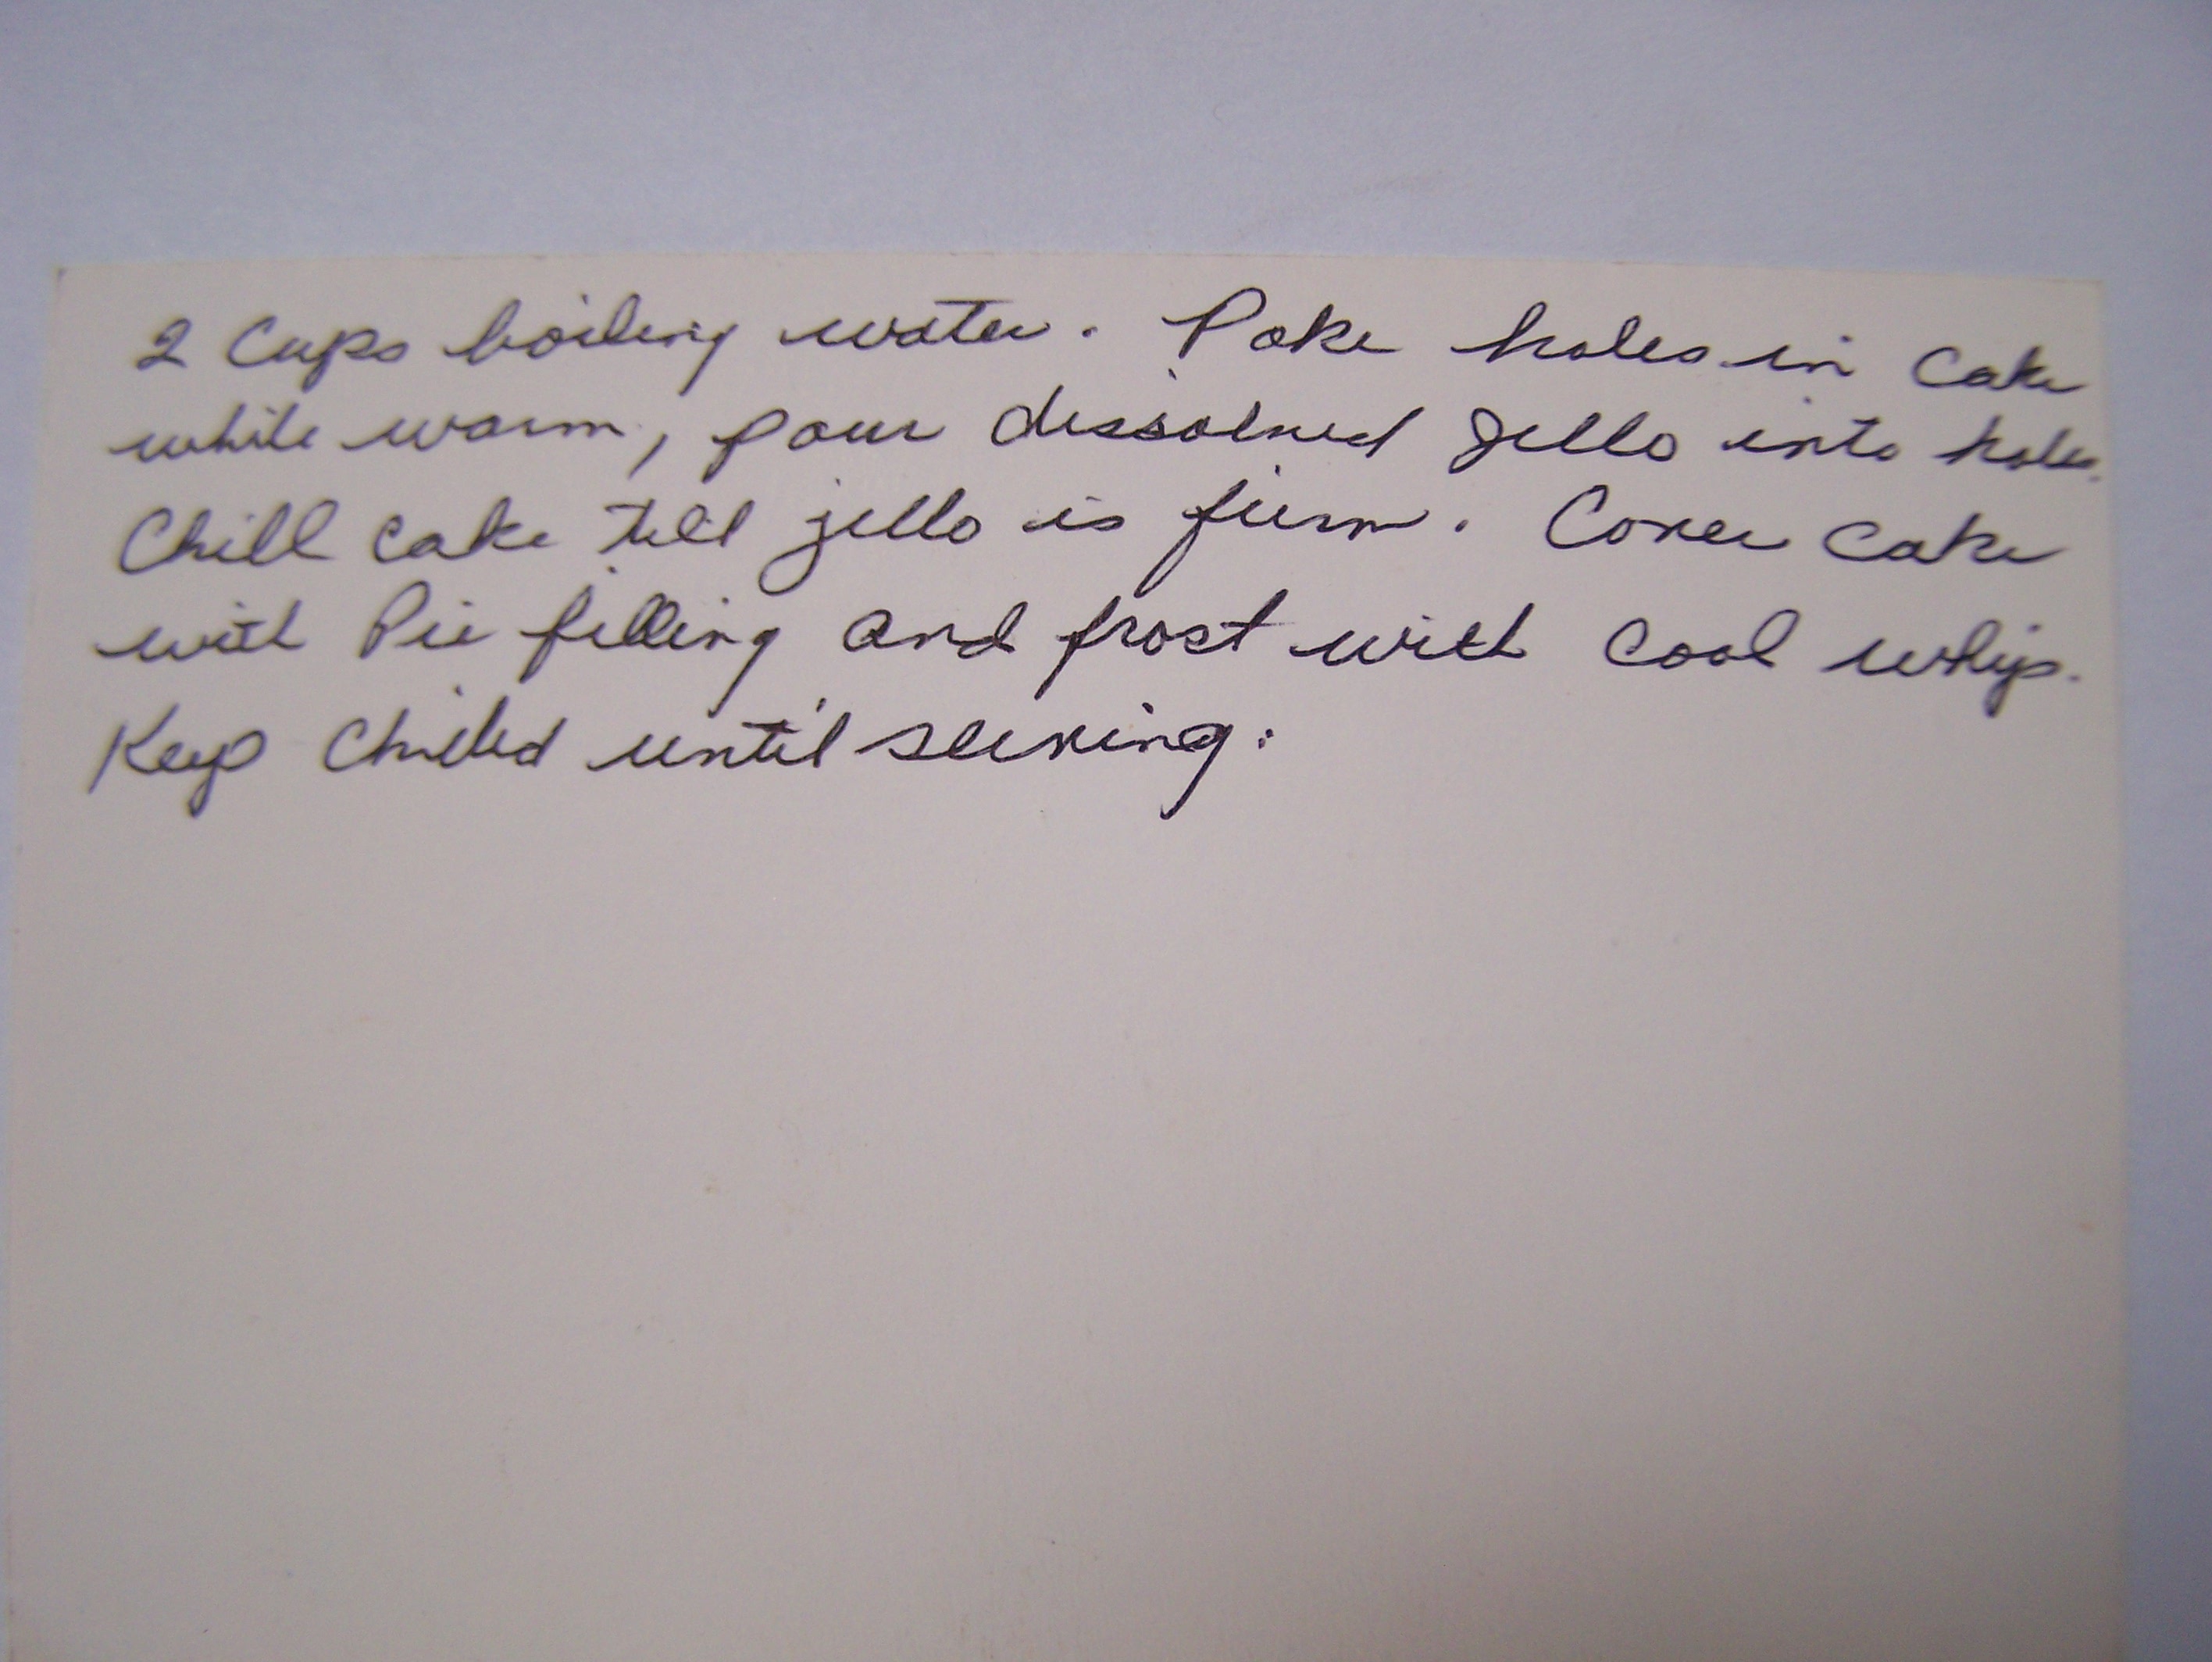 2 Cups boiling water. Poke holes in Cake
while warm, pour dissolved Jello into holes.
Chill cake till jello is firm. Cover Cake
with Pie filling and frost with Cool whip.
Keep Chilled until serving.